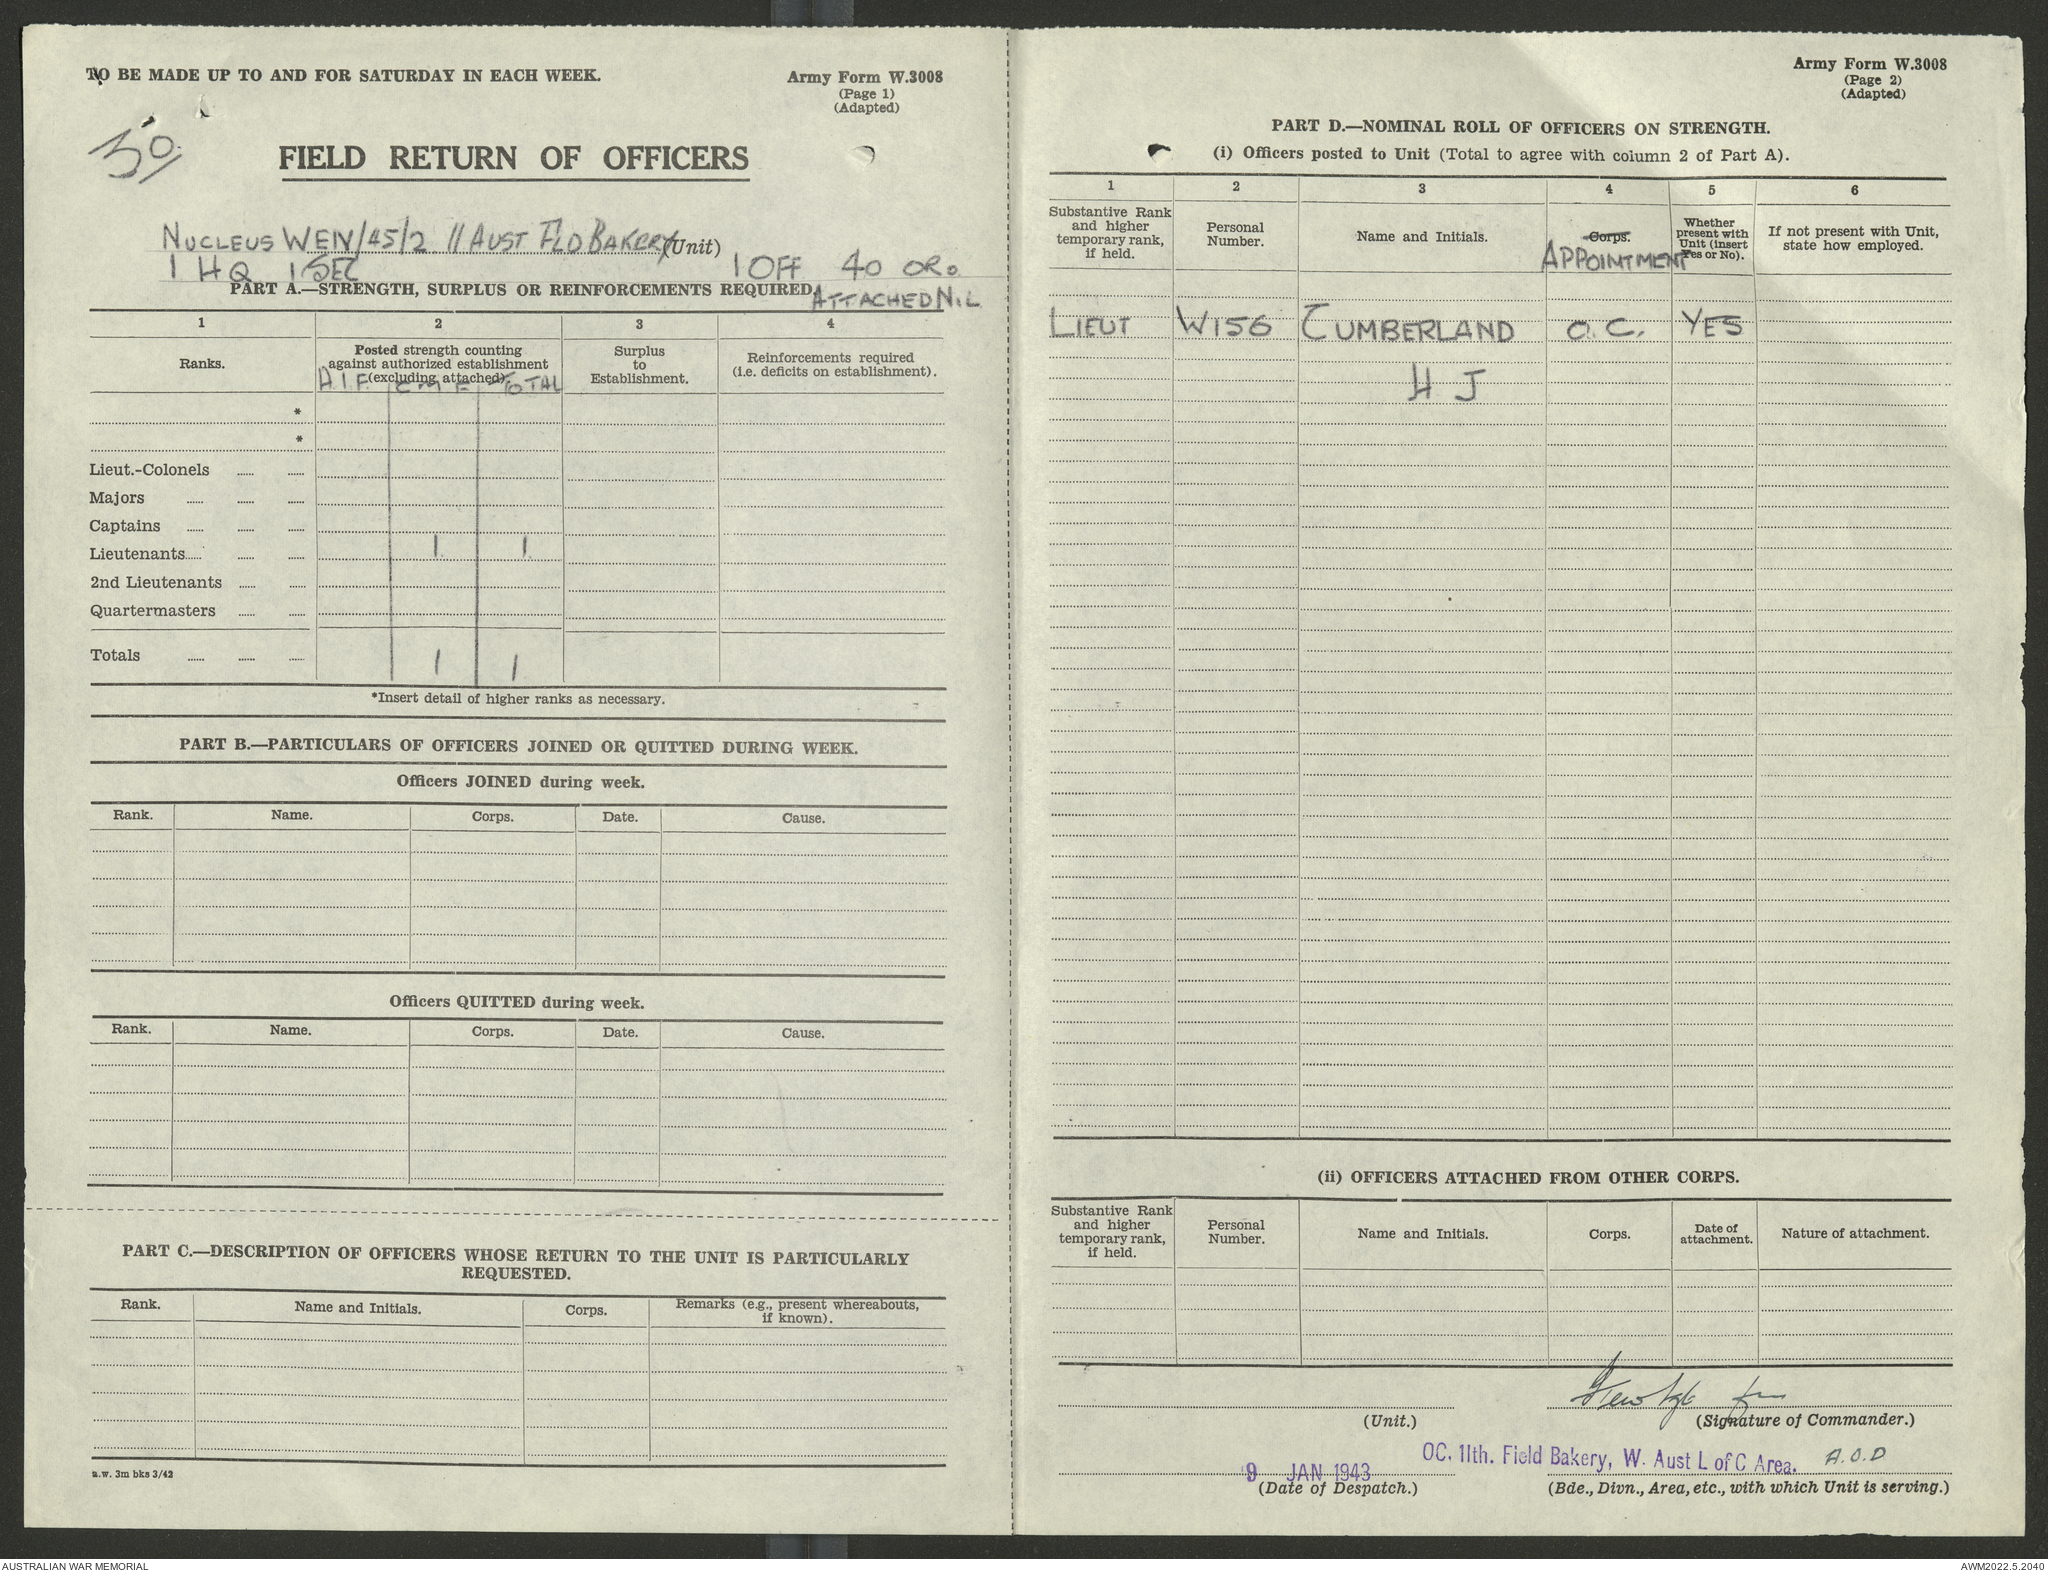 TO BE MADE UP TO AND FOR SATURDAY IN EACH WEEK.
Army Form W.3008
(Page 1)
(Adapted)
30
FIELD RETURN OF OFFICERS
NUCLEUS WEIV/45/2 11 AUST FLD BAKERY (Unit)
1 HQ 1 SEC 1 OFF 40 ORs
PART A.—STRENGTH, SURPLUS OR REINFORCEMENTS REQUIRED
ATTACHED NIL
1 2 3 4
Ranks.
Posted strength counting
against authorized establishment
(excluding attached)
Surplus
to
Establishment.
Reinforcements required
(i.e. deficits on establishment).
A.I.F. C.M.F. TOTAL
*
*
Lieut.-Colonels ...... ......
Majors ...... ...... ......
Captains ...... ...... ......
Lieutenants...... ...... ...... 1 1
2nd Lieutenants ...... ......
Quartermasters ...... ......
Totals ...... ...... ...... 1 1
*Insert detail of higher ranks as necessary.
PART B.—PARTICULARS OF OFFICERS JOINED OR QUITTED DURING WEEK.
Officers JOINED during week.
Rank. Name. Corps. Date. Cause.
Officers QUITTED during week.
Rank. Name. Corps. Date. Cause.
PART C.—DESCRIPTION OF OFFICERS WHOSE RETURN TO THE UNIT IS PARTICULARLY
REQUESTED.
Rank. Name and Initials. Corps.
Remarks (e.g., present whereabouts,
if known).
a.w. 3m bks 3/42
Army Form W.3008
(Page 2)
(Adapted)
PART D.—NOMINAL ROLL OF OFFICERS ON STRENGTH.
(i) Officers posted to Unit (Total to agree with column 2 of Part A).
1 2 3 4 5 6
Substantive Rank
and higher
temporary rank,
if held.
Personal
Number.
Name and Initials.
Corps.
APPOINTMENT
Whether
present with
Unit (insert
Yes or No).
If not present with Unit,
state how employed.
LIEUT W156 CUMBERLAND O.C. YES
H J
(ii) OFFICERS ATTACHED FROM OTHER CORPS.
Substantive Rank
and higher
temporary rank,
if held.
Personal
Number.
Name and Initials.
Corps.
Date of
attachment.
Nature of attachment.
(Unit.)
(Signature of Commander.)
OC. 11th. Field Bakery, W. Aust L of C Area. A.O.D
9 JAN 1943
(Date of Despatch.)
(Bde., Divn., Area, etc., with which Unit is serving.)
AUSTRALIAN WAR MEMORIAL
AWM2022.5.2040